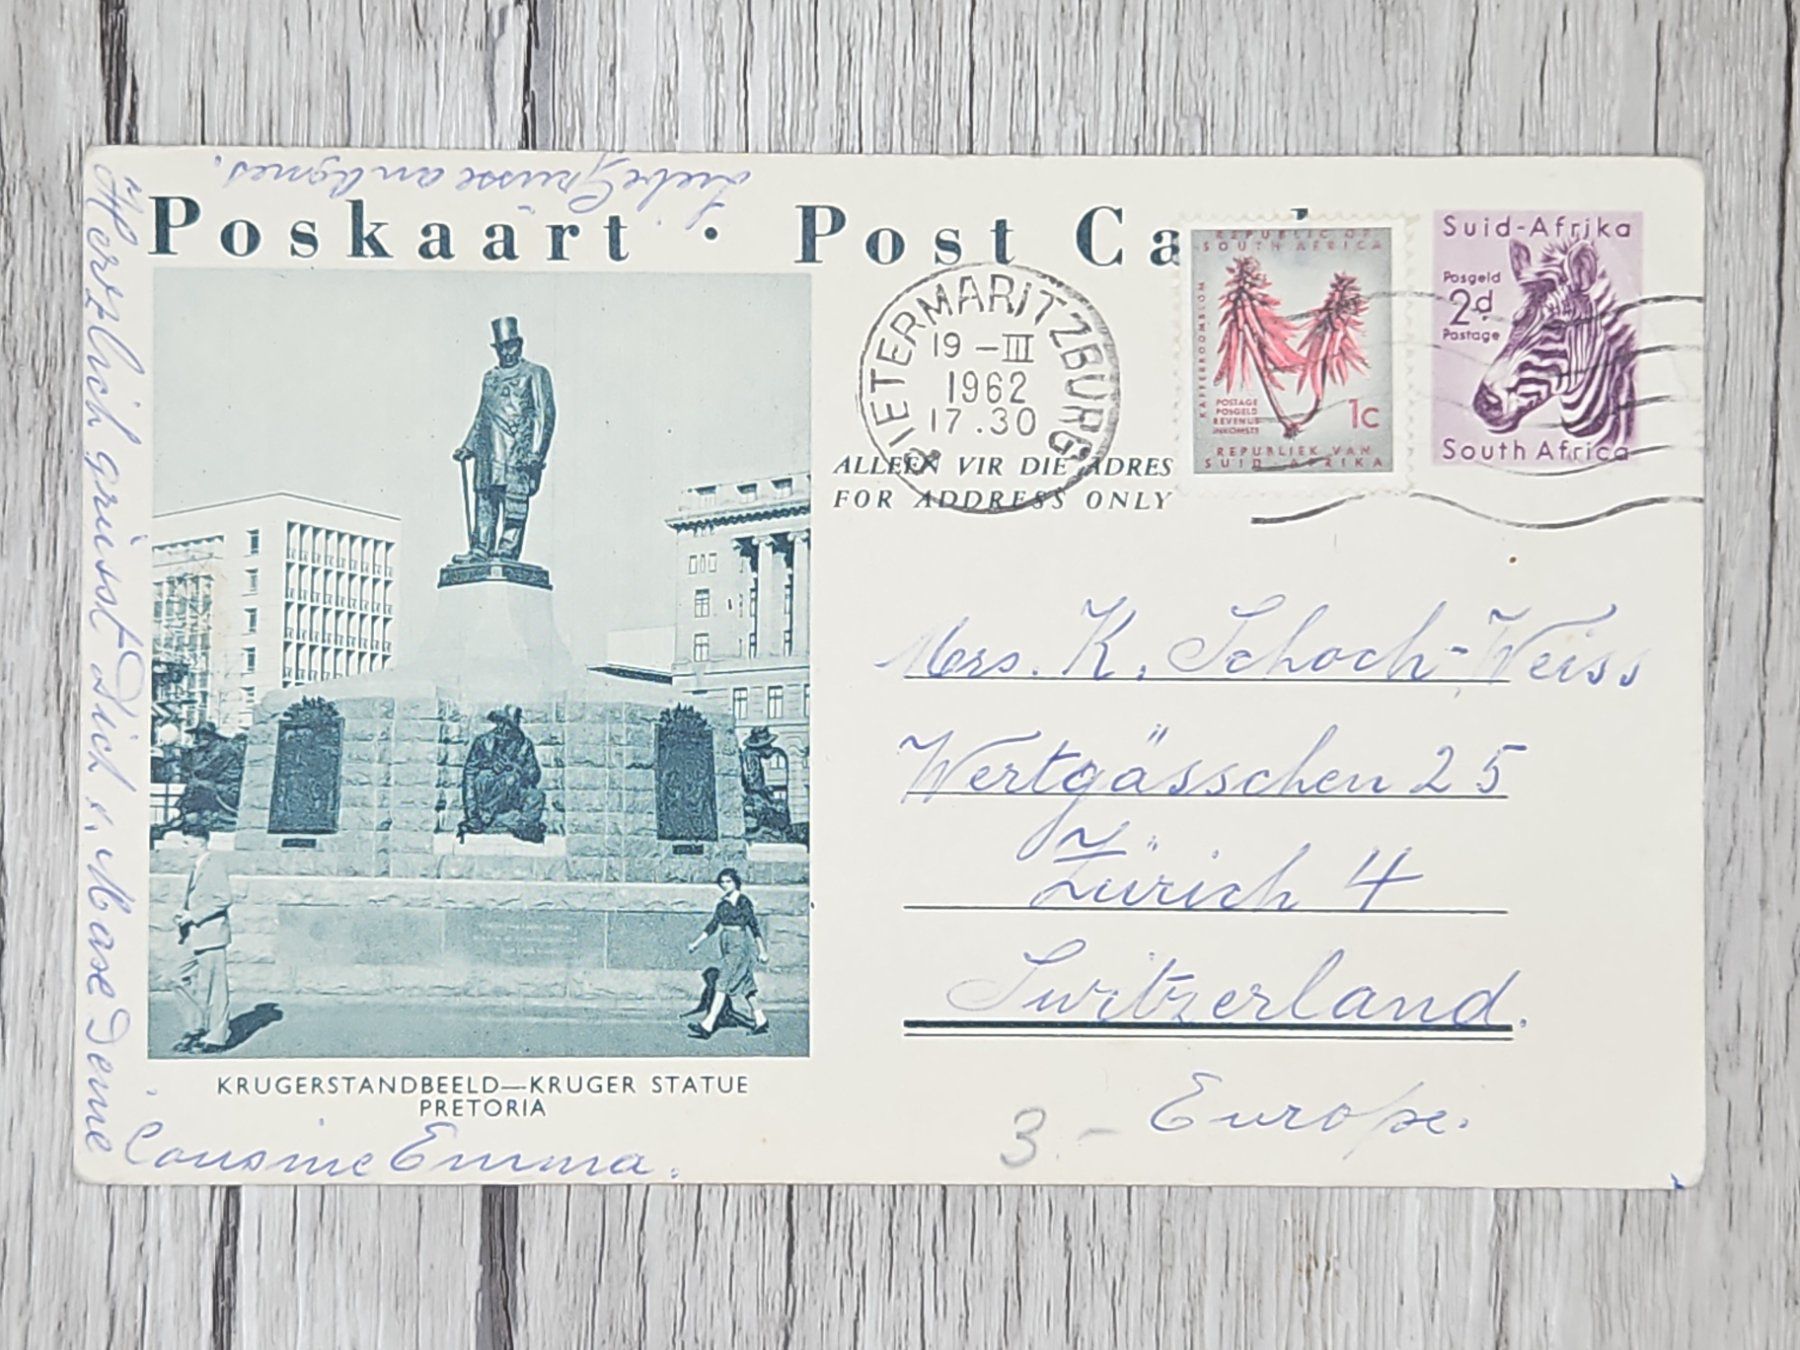 Liebe Grüsse an Agnes.
Poskaart · Post Ca
PIETERMARITZBURG
19 –III
1962
17.30
REPUBLIC OF
SOUTH AFRICA
KAFFERBOOMBLOM
POSTAGE
POSGELD
REVENUE
INKOMSTE
1c
REPUBLIEK VAN
SUID-AFRIKA
Suid-Afrika
Posgeld
2d
Postage
South Africa
ALLEEN VIR DIE ADRES
FOR ADDRESS ONLY
Mrs. K. Schoch-Weiss
Wertgässchen 25
Zürich 4
Switzerland.
Europe.
3.–
KRUGERSTANDBEELD—KRUGER STATUE
PRETORIA
Herzlich grüsst Dich u. Maxe Deine
Cousine Emma.